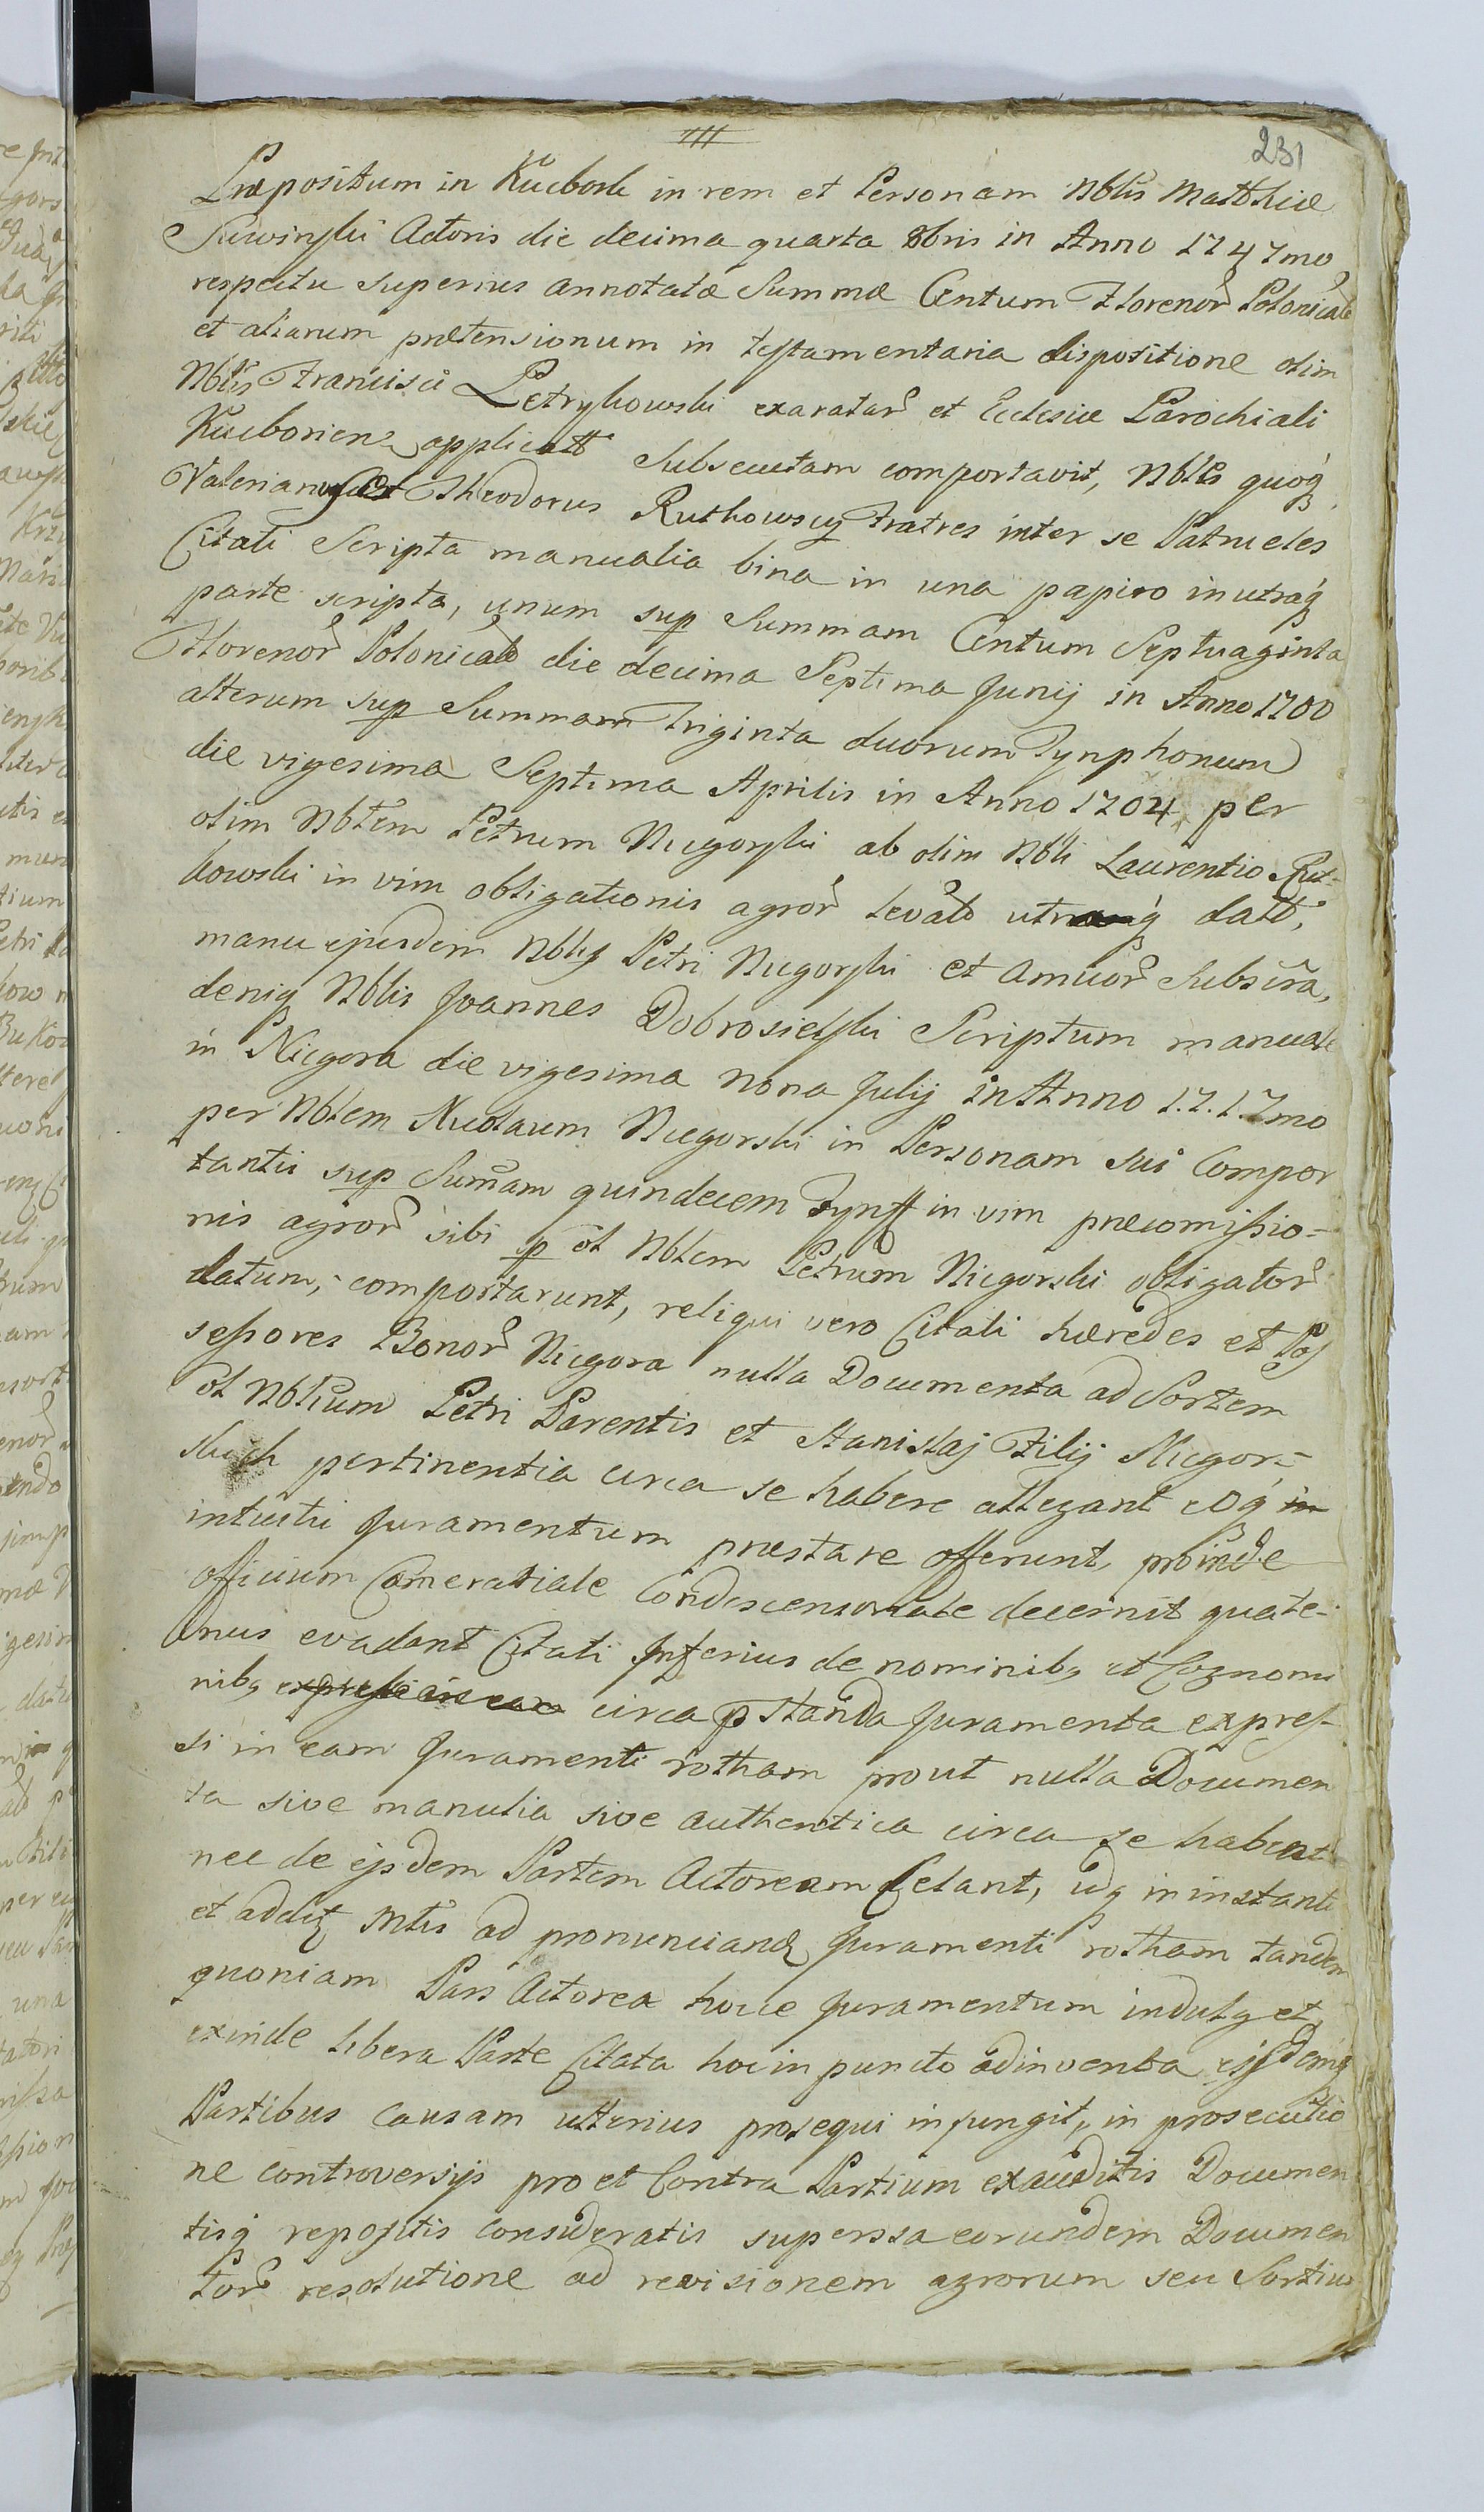 231
Præpositum in Kucbork in rem et Personam Nblis Matthiæ
Suwinski Actoris die decima quarta 8bris in Anno 1747mo
respectu superius annotatæ Summæ Centum Florenor Polonicalm
et aliarum prætensionum in testamentaria dispositione olim
Nblis Francisci Petrykowski exaratar et Ecclesiæ Parochiali
Kucboriens applicatt subsecutam comportavit, Nbles quoq
Valerianus et Theodorus Rutkowscy Fratres inter se Patrueles
Citati Scripta manualia bina in una papiro in utraq
parte scripta, unum sup Summam Centum Septuaginta
Florenor Polonicalm die decima Septima Junij in Anno 1700
alterum sup Summam Triginta duorum Tynphonum
die vigesima Septima Aprilis in Anno 1704 per
olim Nblem Petrum Niegorski ab olim Nbli Laurentio Rut-
kowski in vim obligationis agror levato utrāq datt,
manu ejusdem Nblis Petri Niegorski et Amicor Subscra,
deniq Nblis Joannes Dobrosielski Scriptum manuale
in Niegora die vigesima nona Julij in Anno 1.7.1.7mo
per Nblem Nicolaum Niegorski in Personam sui Compor
tantis sup Summam quindecem Tynff in vim præcomissio-
nis agror sibi p ol Nblem Petrum Niegorski obligator
datum, comportarunt, reliqui vero Citati hæredes et Pos
sessores Bonor Niegora nulla Documenta ad Sortem
ol Nblium Petri Parentis et Stanislaj Filij Niegor-
skich pertinentia circa se habere allegant eoq in
intuitu Juramentum præstare offerunt, proinde
Officium Cameratiale Condescensoriale decernit quate-
nus evadant Citati Inferius de nominibq et Cognomi
nibq circa pstanda Juramenta expres-
si in eam Juramenti rotham prout nulla Documen
ta sive manulia sive authentica circa se habeat
nec de ejsdem Partem Actoream Celant, idq in instanti
et addit Mtis ad pronunciand Juramenti rotham tandem
quoniam Pars Actorea hocce Juramentum indulget,
exinde libera Parte Citata hoc in puncto adinventa ejsdemq
Partibus Causam ulterius prosequi injungit, in prosecutio
ne controversijs pro et Contra Partium exauditis Documen
tisq repositis consideratis superssa eorundem Documen
tor resolutione ad revisionem agrorum seu Sortium